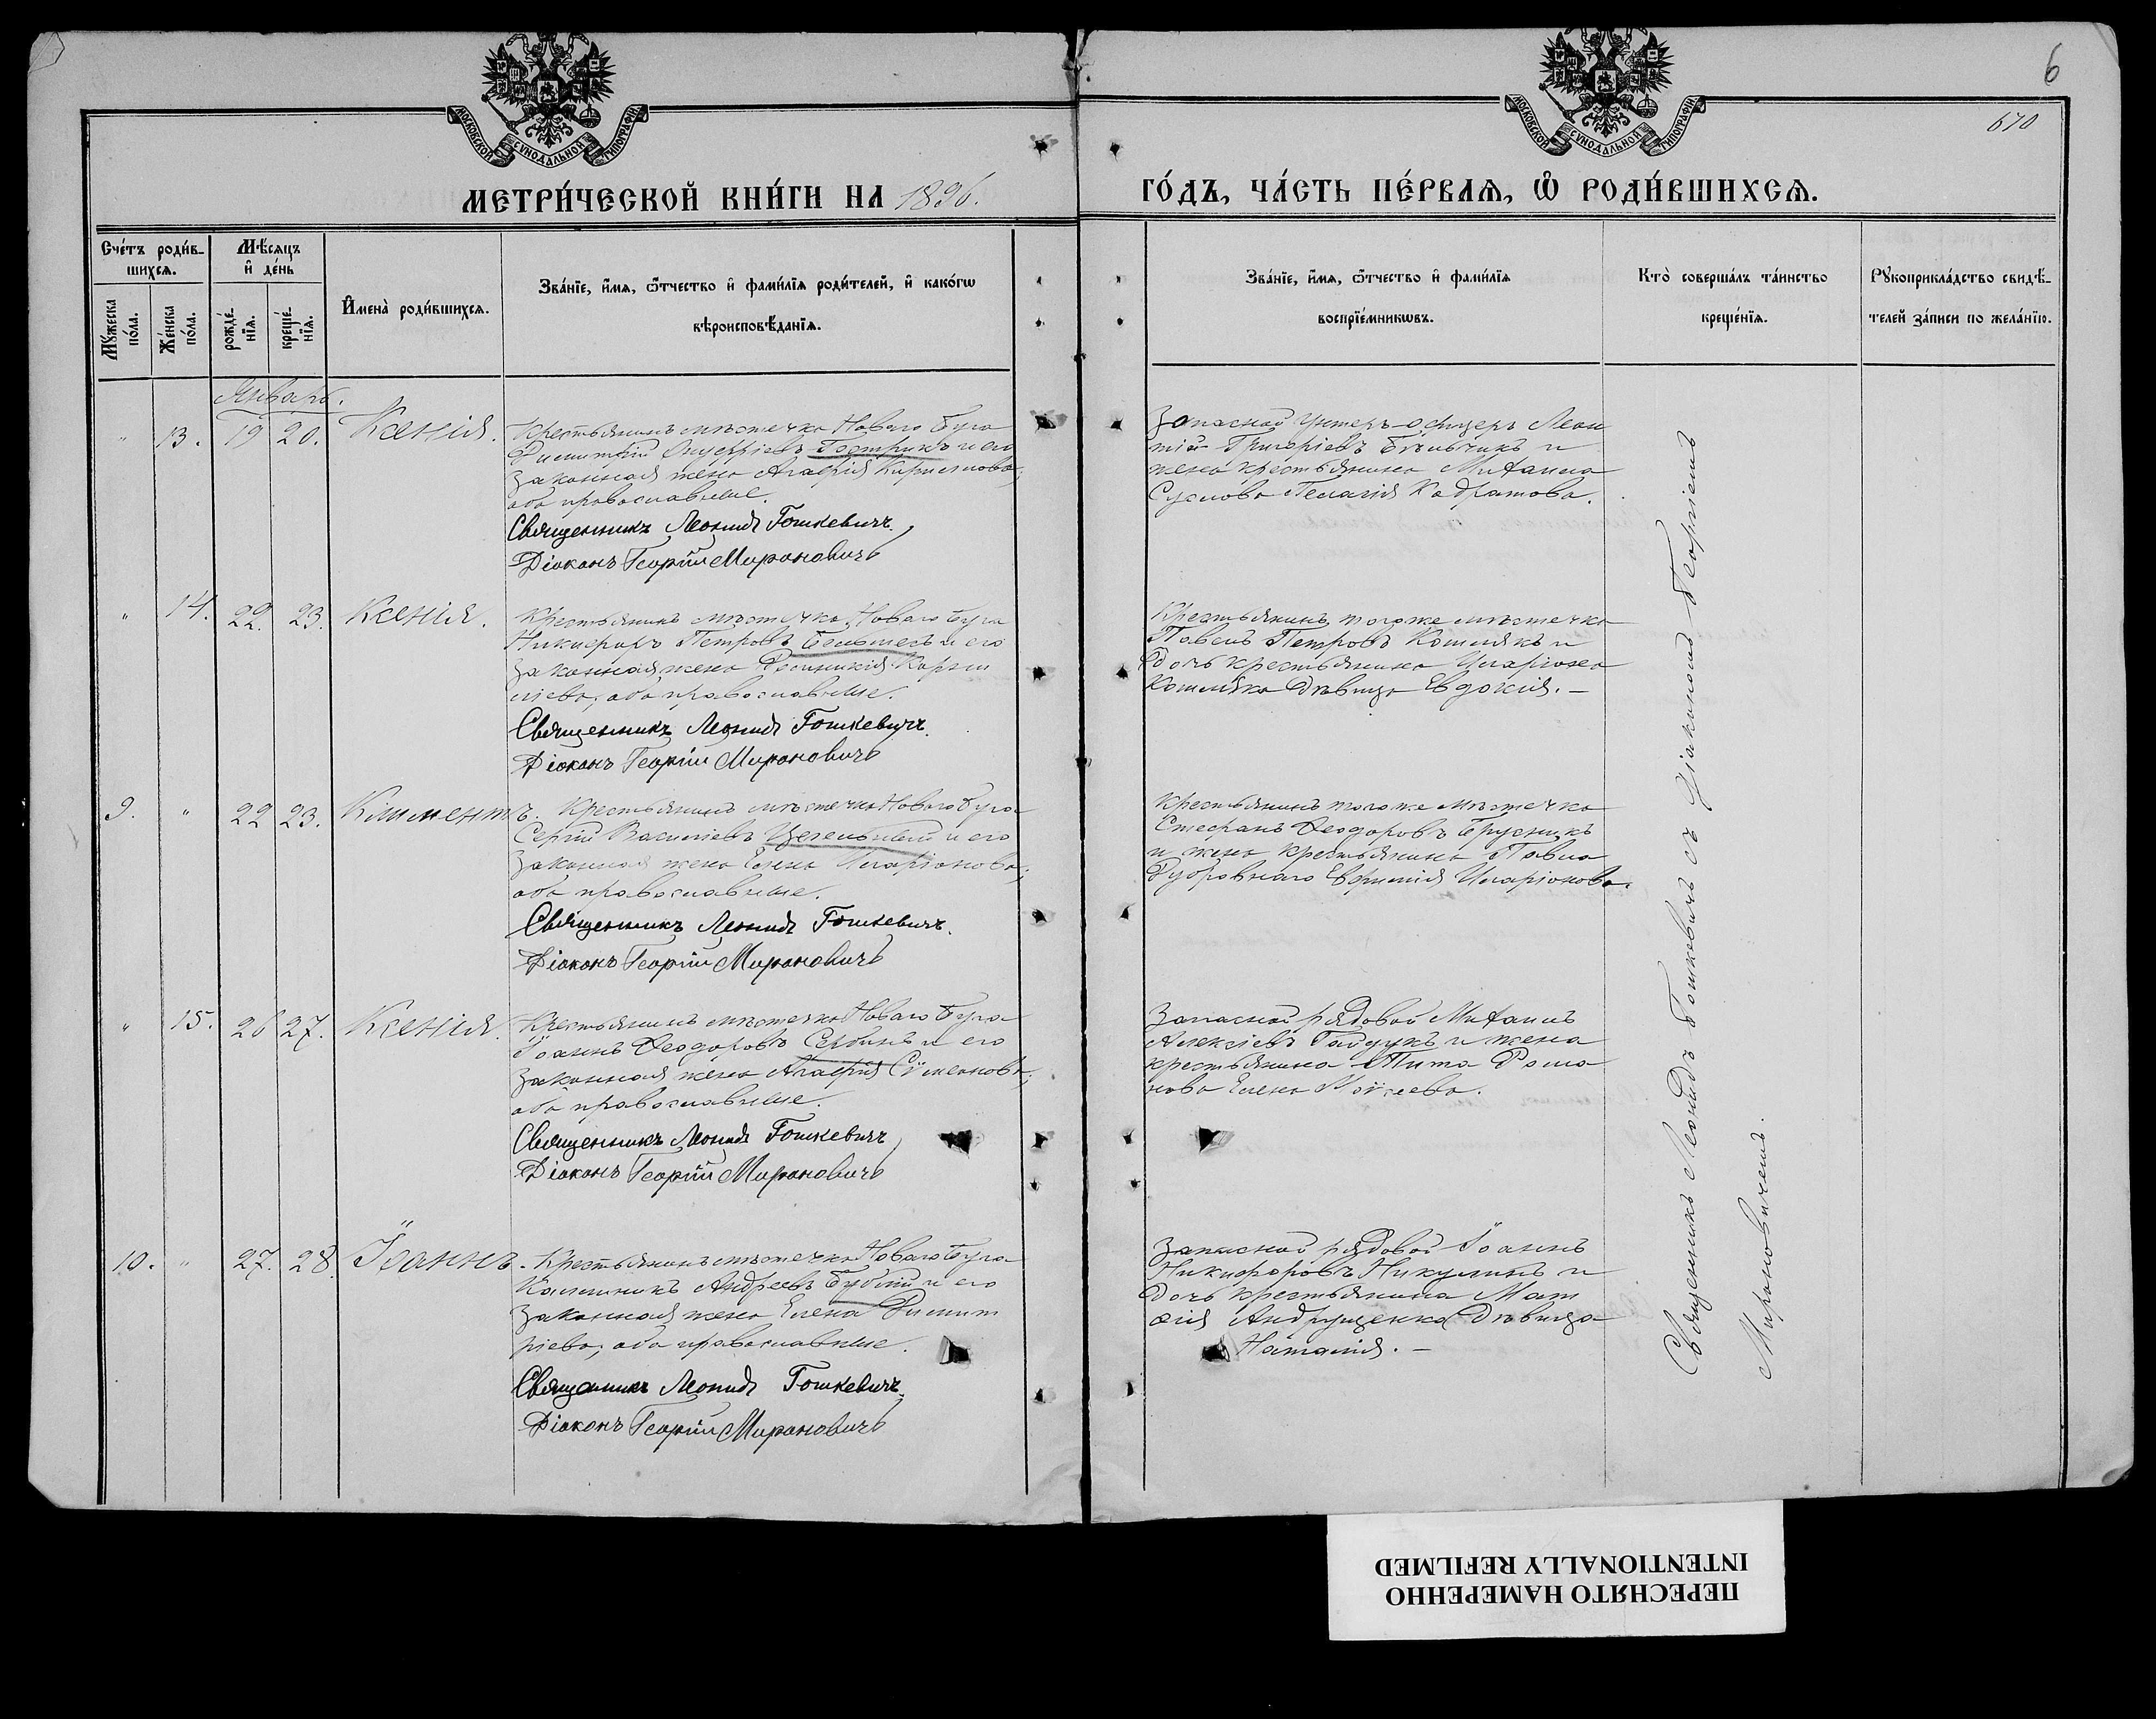 6
670
МОСКОВСКОЙ СѴНОДАЛЬНОЙ ТИПОГРАФІИ
МОСКОВСКОЙ СѴНОДАЛЬНОЙ ТИПОГРАФІИ
МЕТРИ́ЧЕСКОЙ КНИ́ГИ НА 1896.
ГО́ДЪ, ЧА́СТЬ ПЕ́РВАѦ, Ѽ РОДИ́ВШИХСѦ.
Сче́тъ роди́в-
шихсѧ.
Мѣ́сѧцъ
и҆ де́нь
Мꙋ́жеска
по́ла.
Же́нска
по́ла.
рожде́-
нїѧ.
креще́-
нїѧ.
И҆мена̀ роди́вшихсѧ.
Зва́нїе, и҆́мѧ, ѻ҆́тчество и҆ фами́лїѧ роди́телей, и҆ како́гѡ
вѣроисповѣ́данїѧ.
Зва́нїе, и҆́мѧ, ѻ҆́тчество и҆ фами́лїѧ
воспрїе́мникѡвъ.
Кто̀ соверша́лъ та́инство
креще́нїѧ.
Рꙋкоприкла́дство свидѣ́-
телей за́писи по жела́нїю.
Январь.
" 13. 19 20. Ксенія.
Крестьянинъ мѣстечка Новаго Буга
Димитрій Онуфріевъ и его
законная жена Агафія Кириллова,
оба православные.
Священникъ Леонидъ Гошкевичъ.
Діаконъ Георгій Мироновичъ
Запасной Унтеръ-офицеръ Леон
тій Григоріевъ и
жена крестьянина Михаила
Суслова Пелагія Кодратова.
" 14. 22. 23. Ксенія.
Крестьянинъ мѣстечка Новаго Буга
Никифоръ Петровъ и его
законная жена Корни
ліева, оба православные.
Священникъ Леонидъ Гошкевичъ.
Діаконъ Георгій Мироновичъ
Крестьянинъ того же мѣстечка
Павелъ Петровъ Кошлякъ и
дочь крестьянина Иларіона
Кошляка дѣвица Евдокія. —
9. " 22 23. Климентъ.
Крестьянинъ мѣстечка Новаго Буга
Сергій Василіевъ и его
законная жена Елена Иларіонова;
оба православные.
Священникъ Леонидъ Гошкевичъ.
Діаконъ Георгій Мироновичъ
Крестьянинъ того же мѣстечка
Стефанъ Ѳеодоровъ
и жена крестьянина Павла
Дубровнаго Евфимія Иларіонова.
" 15. 26 27. Ксенія
Крестьянинъ мѣстечка Новаго Буга
Іоаннъ Ѳеодоровъ Сербинъ и его
законная жена Агафія Сѵмеонова;
оба православные.
Священникъ Леонидъ Гошкевичъ,
Діаконъ Георгій Мироновичъ
Запасной рядовой Михаилъ
Алексіевъ Гайдукъ и жена
крестьянина Тита Рома
нова Елена Моисеева.
10. " 27. 28. Іоаннъ.
Крестьянинъ мѣстечка Новаго Буга
Каллиникъ Андреевъ Бублій и его
законная жена Елена Димит
ріева, оба православные.
Священникъ Леонидъ Гошкевичъ.
Діаконъ Георгій Мироновичъ
Запасной рядовой Іоаннъ
Никифоровъ Никулинъ и
дочь крестьянина Мат
ѳія Андрущенка дѣвица
Наталія. —
Священникъ Леонидъ Гошкевичъ съ діакономъ Георгіемъ
Мироновичемъ.
ПЕРЕСНЯТО НАМЕРЕННО
INTENTIONALLY REFILMED